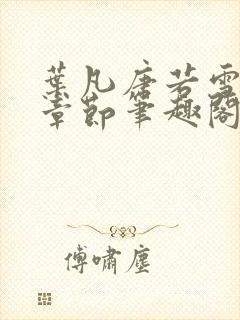 葉凡唐若雪
章節筆趣閣
傅嘯塵